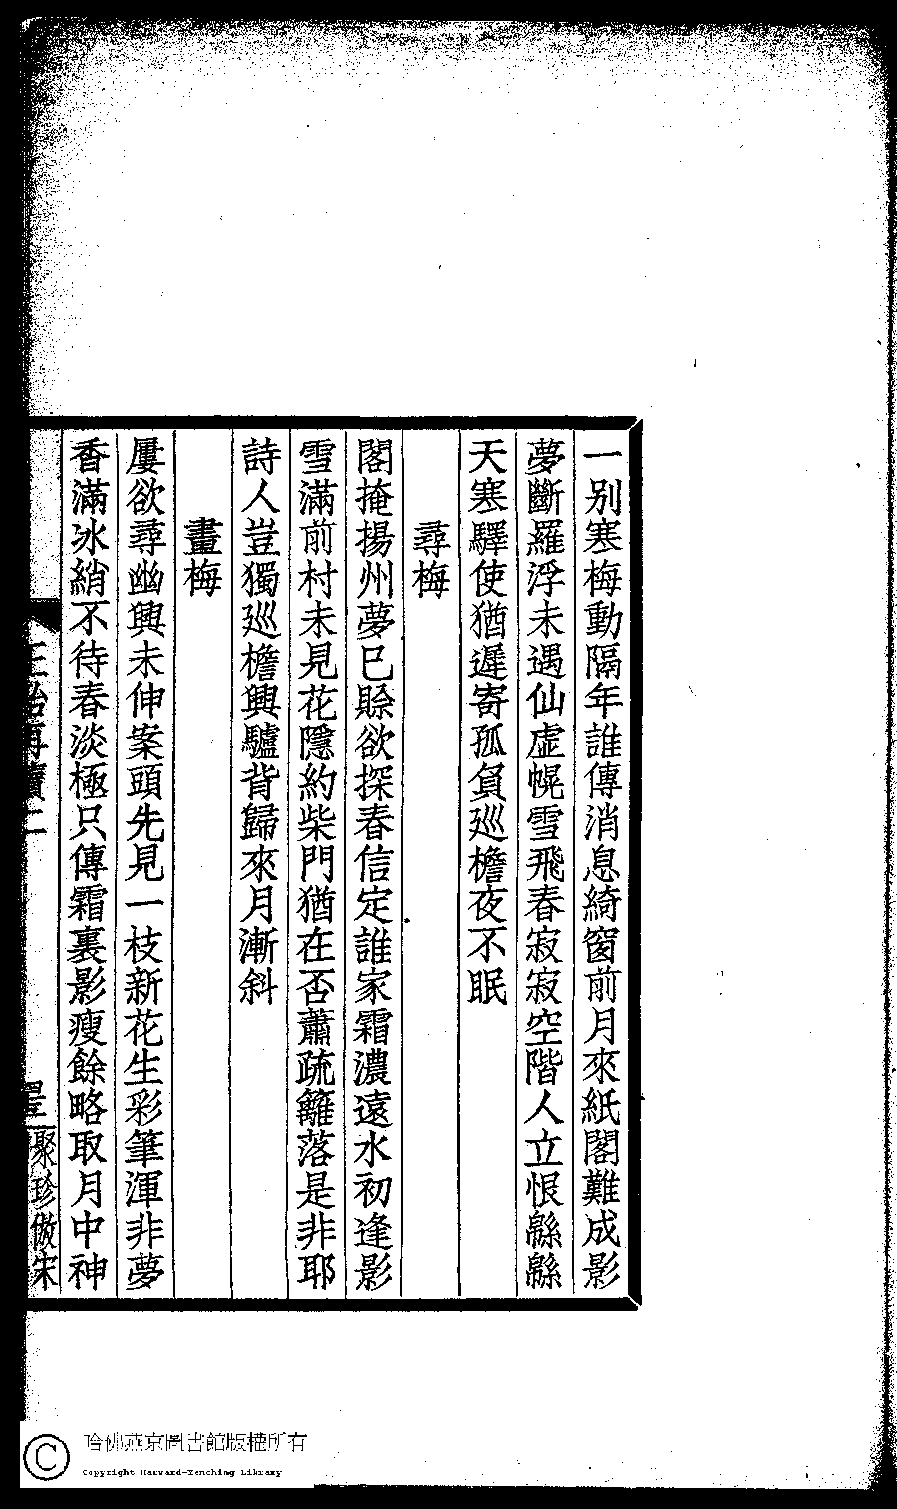 一别寒梅動隔年誰傳消息綺窗前月來紙閣難成影
夢斷羅浮未遇仙虛幌雪飛春寂寂空階人立恨緜緜
天寒驛使猶遲寄孤負巡檐夜不眠
尋梅
閣掩揚州夢已賒欲探春信定誰家霜濃遠水初逢影
雪滿前村未見花隱約柴門猶在否蕭疏籬落是非耶
詩人豈獨巡檐興驢背歸來月漸斜
畫梅
屢欲尋幽興未伸案頭先見一枝新花生彩筆渾非夢
香滿冰綃不待春淡極只傳霜裏影瘦餘略取月中神
二
聚珍倣宋
哈佛燕京圖書館版權所有
Copyright Harvard-Yenching Library